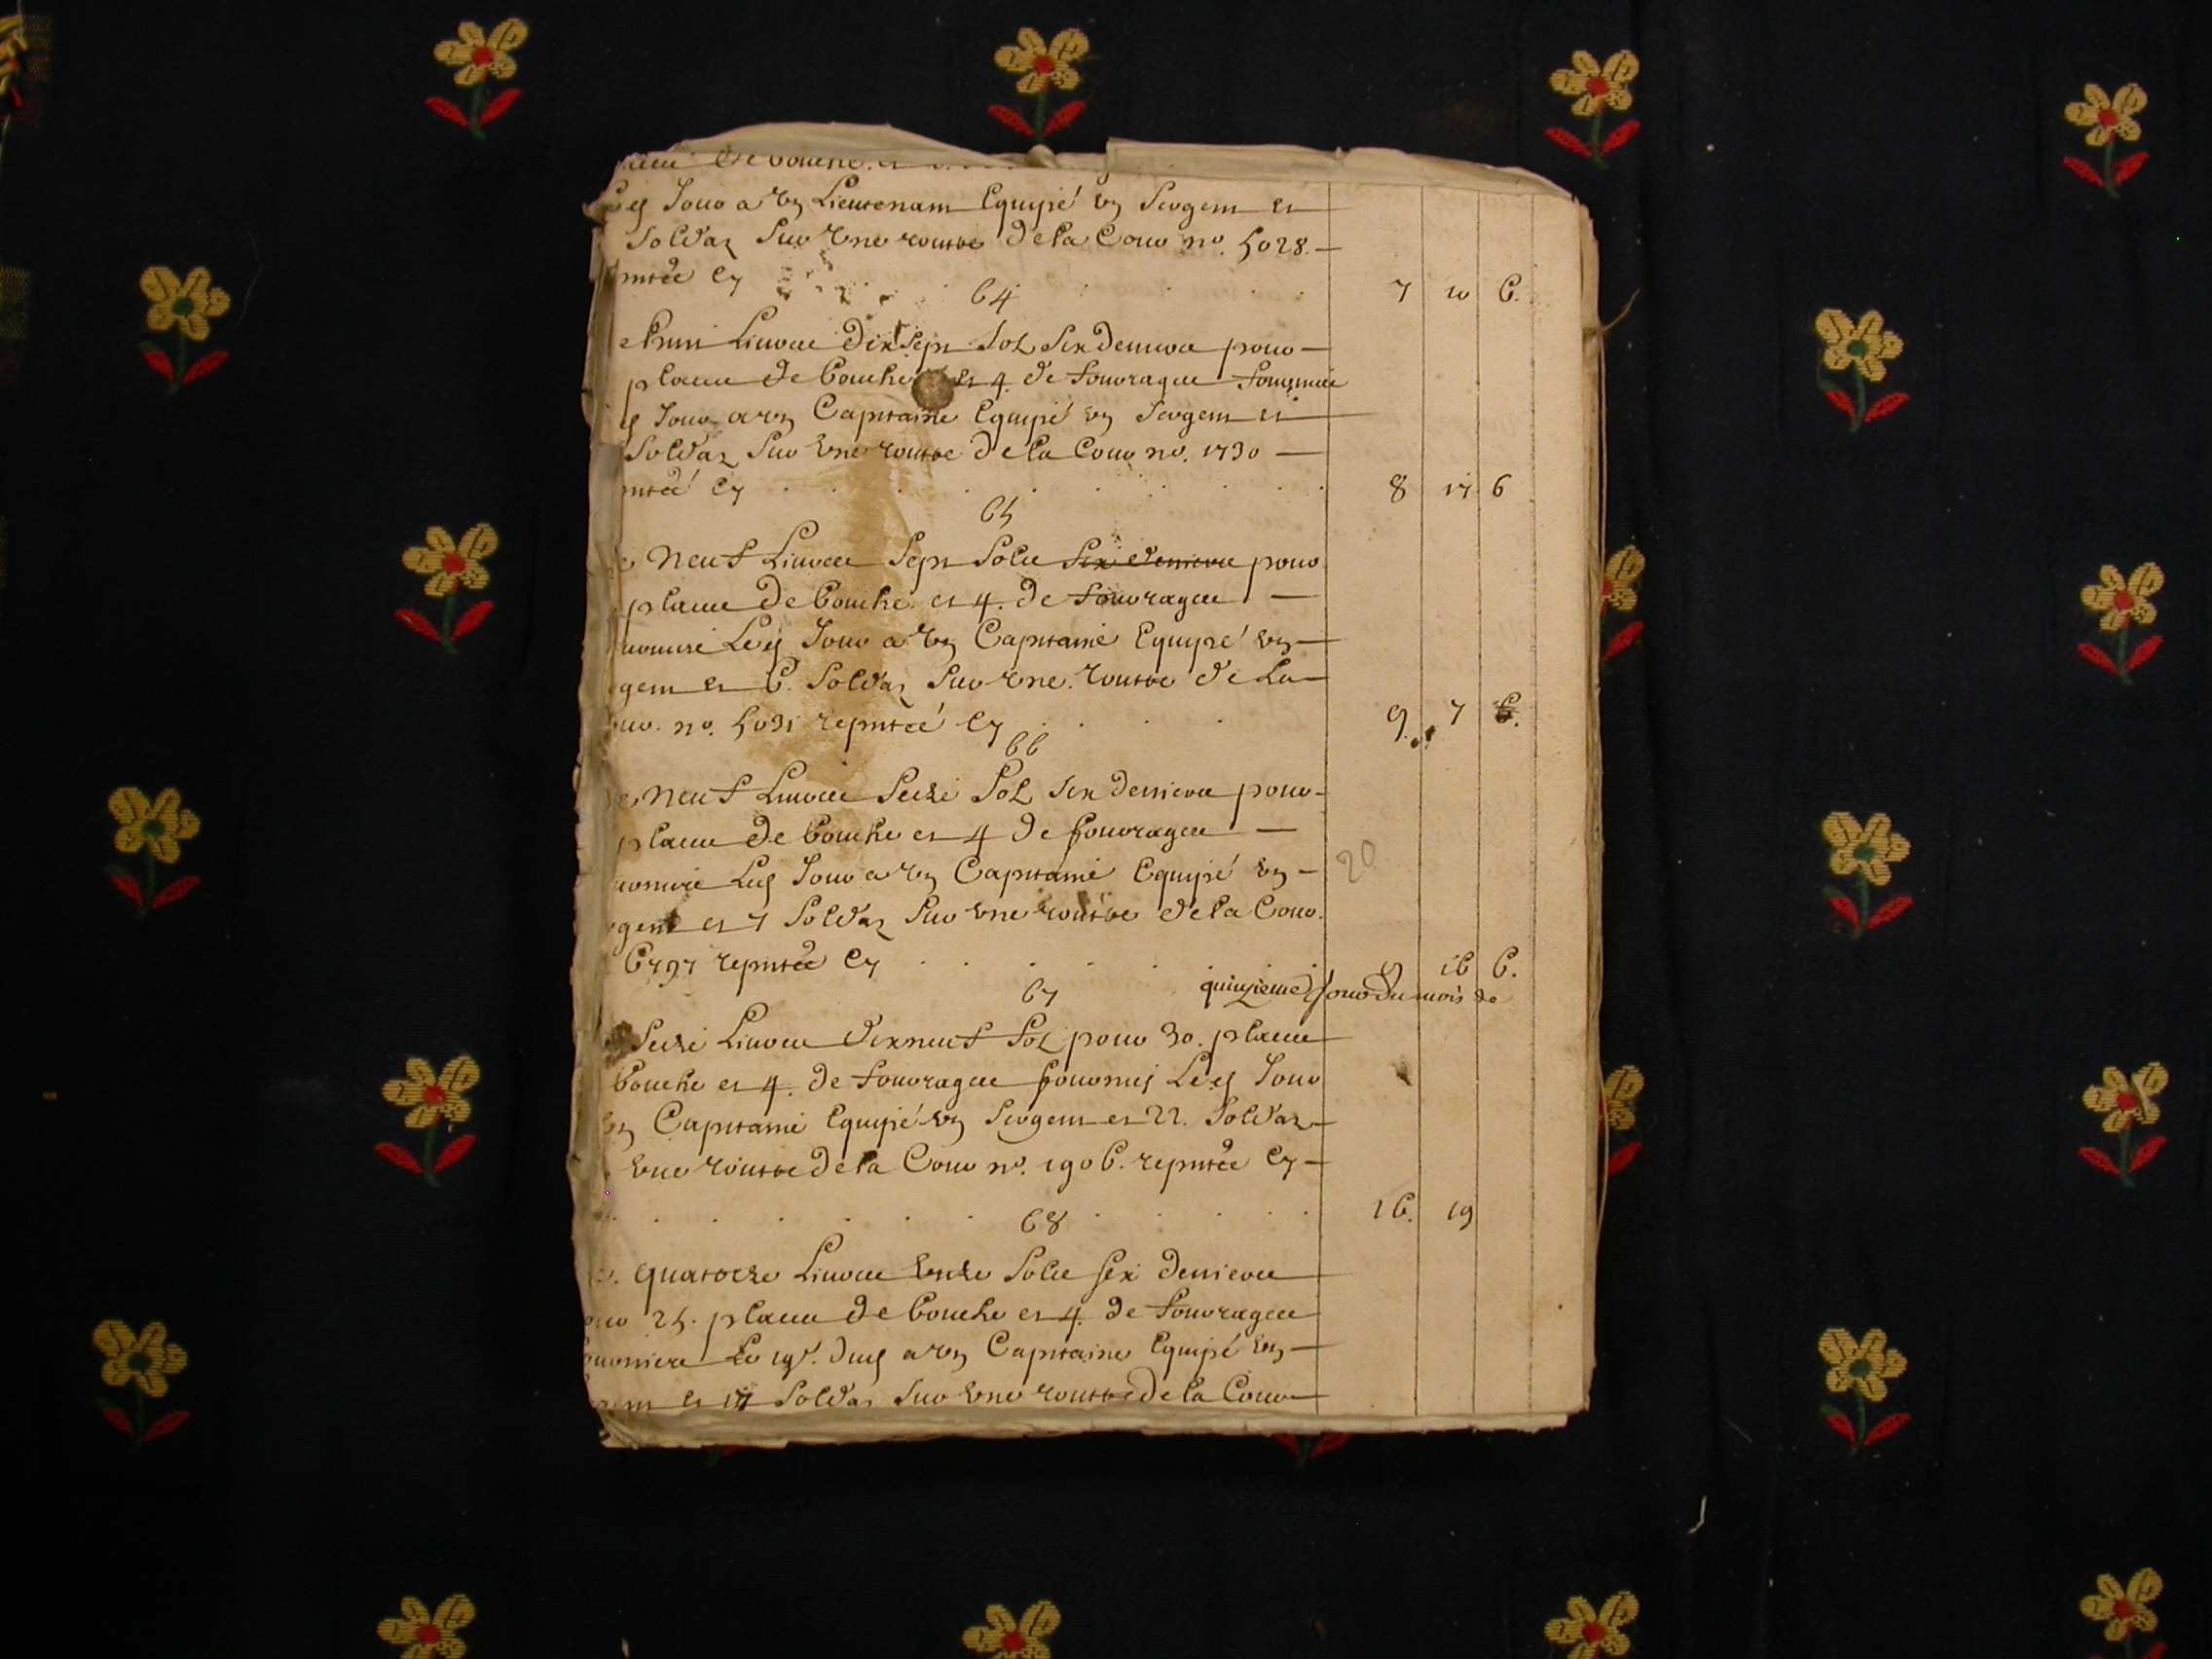 de bouche et
Led Jour a un Lieutenant Equipé un Sergent et
Soldaz Sur Une routte de la Cour no. 5028.
mtée Cy 7 10 6.
64
huit Livres dix Sept Sols Six deniers pour
places de bouche et 4. de fourrages fournies
d Jour a un Capitaine Equipé un Sergent et
Soldaz Sur Une routte de la Cour no. 1730
mtée Cy 8 17 6
65
Neuf Livres Sept Sols Six deniers pour
places de bouche et 4. de fourrages
Led Jour a un Capitaine Equipé un
gent et 6. Soldaz Sur Une routte de La
no. 5031 repntée Cy 9. 7 6.
66
Neuf Livres Seize Sols Six deniers pour
places de bouche et 4 de fourrages
Led Jour a un Capitaine Equipé un 20
gent et 7 Soldaz Sur Une routte de la Cour
6797 repntée Cy 9 16 6.
67 quinzieme Jour du mois de
Seize Livres dixneuf Sols pour 30. places
bouche et 4. de fourrages fournis Led Jour
un Capitaine Equipé un Sergent et 22. Soldaz
Une routte de la Cour no. 1906. repntée Cy
16. 19
68
quatorze Livres Unze Sols Six deniers
25. places de bouche et 4. de fourrages
Le 19e. dud a un Capitaine Equipé un
et 17 Soldaz Sur Une routte de la Cour